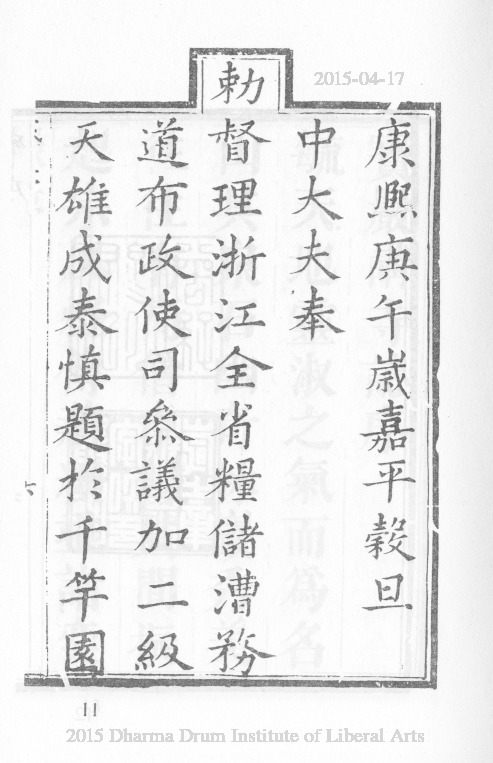 2015-04-17
康熙庚午歲嘉平穀旦
中大夫奉
勅
督理浙江全省糧儲漕務
道布政使司叅議加二級
天雄成泰慎題於千竿園
六
11
2015 Dharma Drum Institute of Liberal Arts